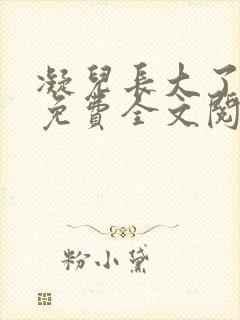 凝兒長大了
免費全文閱
粉小黛